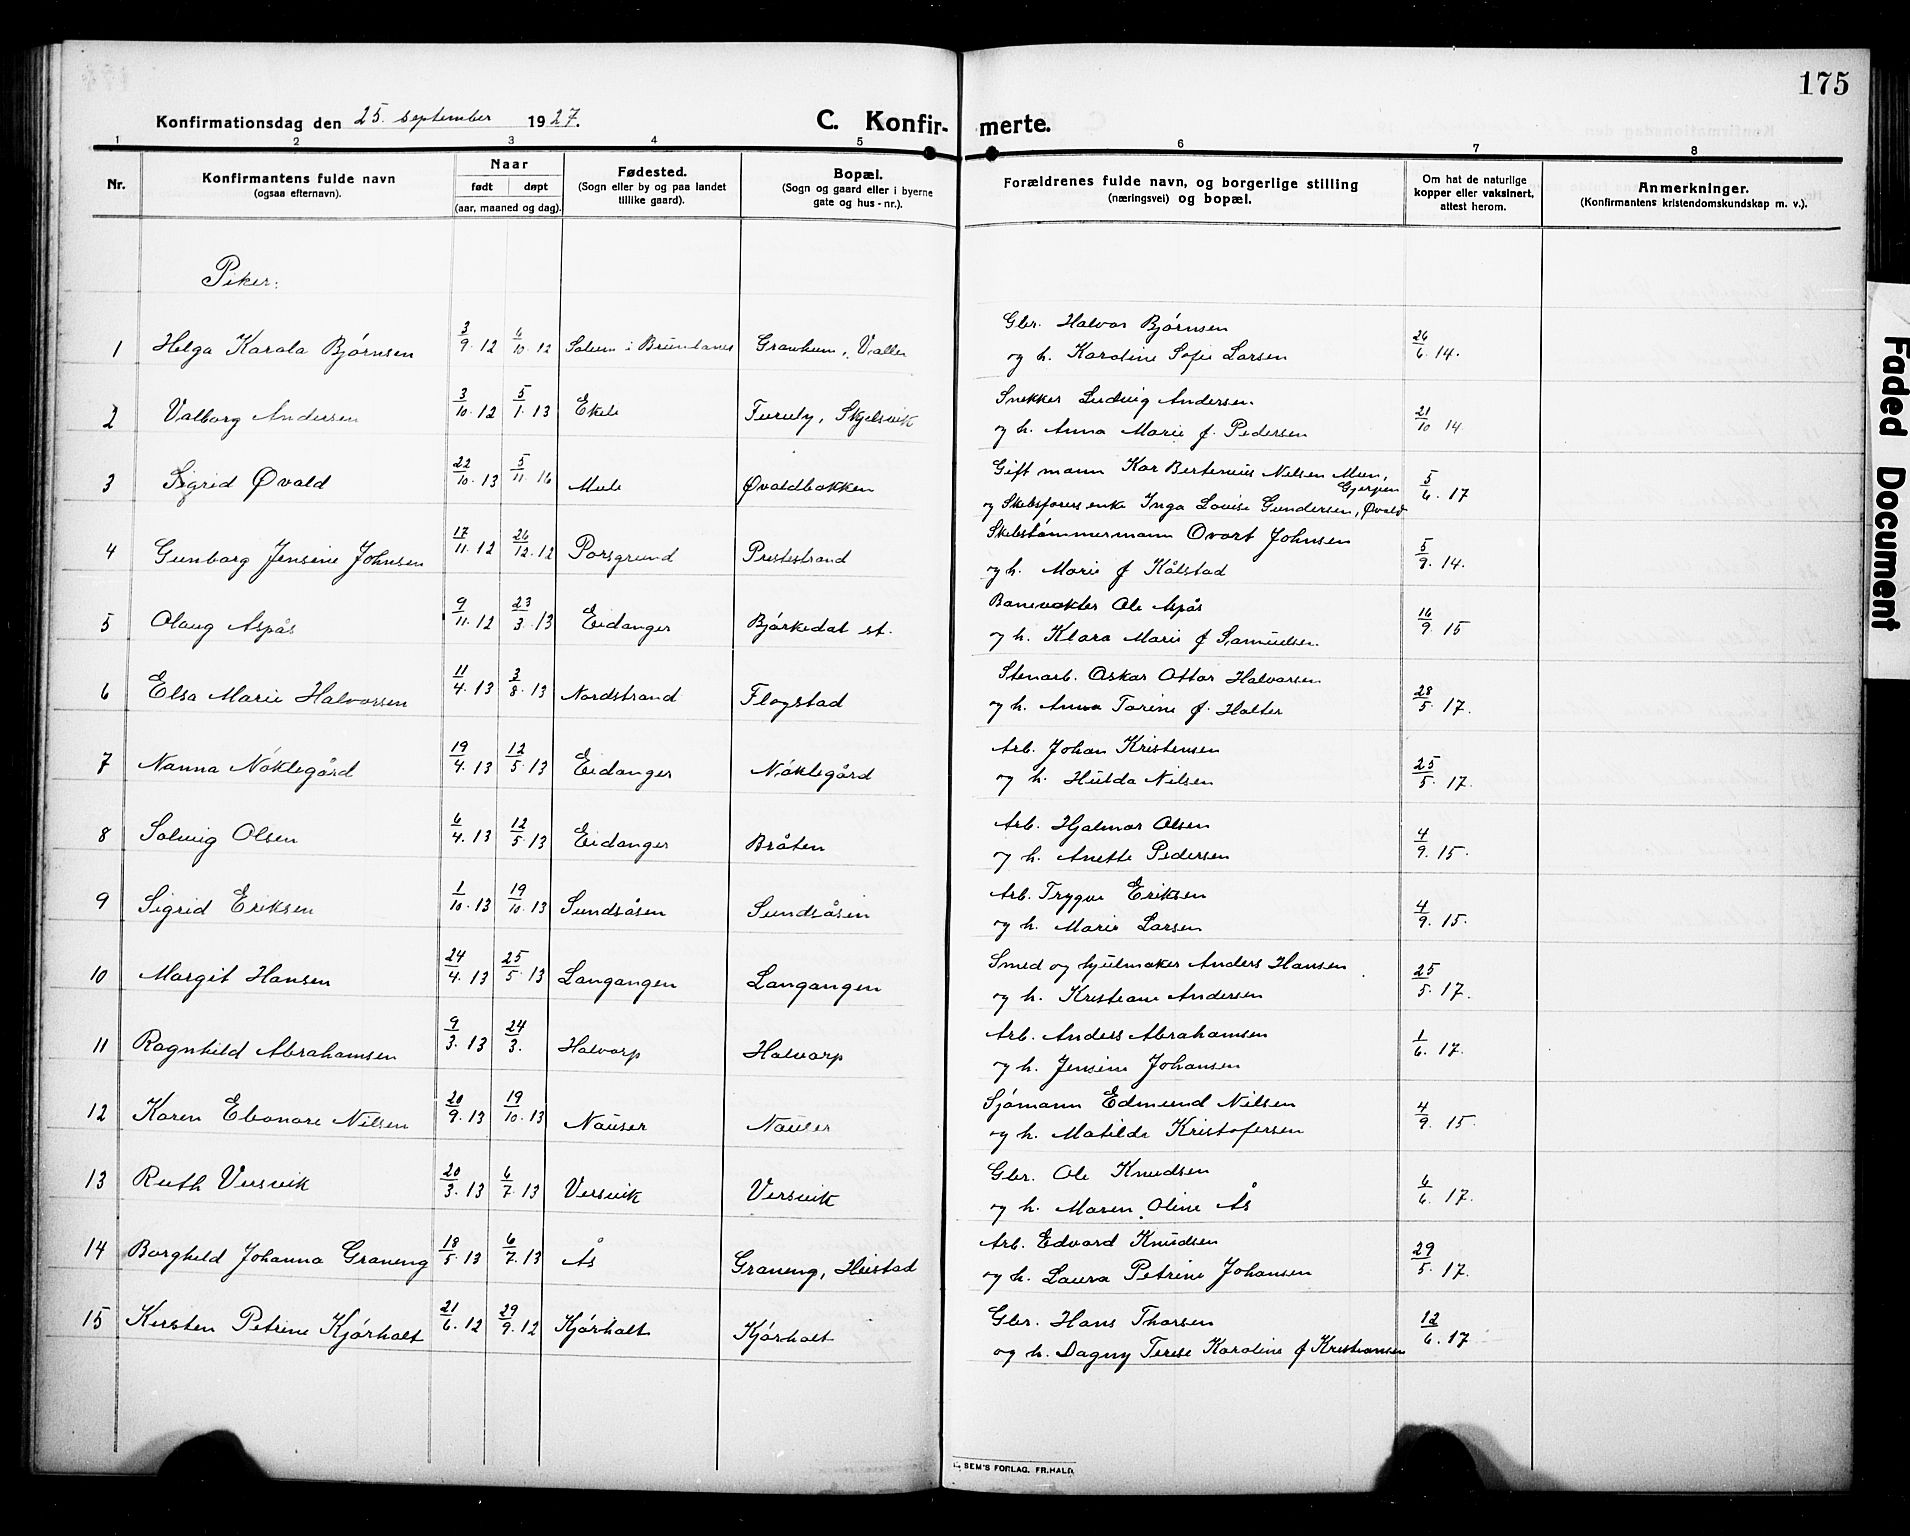 175
Konfirmationsdag den 25. september 1927.
C. Konfirmerte.
1 2 3 4 5 6 7 8
Nr.
Konfirmantens fulde navn (ogsaa efternavn).
Naar født døpt (aar, maaned og dag).
Fødested. (Sogn eller by og paa landet tillike gaard).
Bopæl. (Sogn og gaard eller i byerne gate og hus-nr.).
Forældrenes fulde navn, og borgerlige stilling (næringsvei) og bopæl.
Om hat de naturlige kopper eller vaksinert, attest herom.
Anmerkninger. (Konfirmantens kristendomskundskap m. v.).
Piker:
1 Helga Karola Bjørnsen 3/9 12 6/10 12 i Brunlanes Valler Gbr. Halvor Bjørnsen 26/6 14.
og h. Karoline Sofie Larsen
2 Valborg Andersen 3/10 12 5/1 13 Furuly, Skjelsvik Snekker Ludvig Andersen 21/10 14
og h. Anna Marie f. Pedersen
3 Sigrid Øvald 22/10 13 5/11 16 Mule Øvaldbakken Gift mann Nilsen Gjerpen 5/6 17
og Skibsførers enke Inga Lovise Gundersen, Øvald
4 Gunborg Jensine Johnsen 17/11 12 26/12 12 Porsgrund Prestestrand Skibstømmermann Johnsen 5/9 14.
og h. Marie f Kålstad
5 Olaug Aspås 9/11 12 23/3 13 Eidanger Bjørkedal st. Banevokter Ole Aspås 16/9 15
og h. Klara Marie f Samuelsen.
6 Elsa Marie Halvorsen 11/4 13 3/8 13 Nordstrand Flogstad Stenarb. Oskar Ottar Halvorsen 28/5 17.
og h. Anna Torine f. Holter
7 Nanna Nøklegård 19/4 13 12/5 13 Eidanger Nøklegård Arb. Johan Kristensen 25/5 17.
og h. Hulda Nilsen
8 Solveig Olsen 6/4 13 12/5 13 Eidanger Bråten Arb. Hjalmar Olsen 4/9 15.
og h. Anette Pedersen
9 Sigrid Eriksen 1/10 13 19/10 13 Sundsåsen Sundsåsen Arb. Trygve Eriksen 4/9 15.
og h. Marie Larsen
10 Margit Hansen 24/4 13 25/5 13 Langangen Langangen Smed og hjulmaker Anders Hansen 25/5 17.
og h. Kristiane Andersen
11 Ragnhild Abrahamsen 9/3 13 24/3. Halvarp Halvarp Arb. Anders Abrahamsen 1/6 17.
og h. Jensine Johansen
12 Karen Eleonore Nilsen 20/9 13 19/10 13 Nauser Nauser Sjømann Edmund Nilsen 4/9 15.
og h. Matilde Kristofersen
13 Ruth Versvik 20/3 13 6/7 13 Versvik Versvik Gbr. Ole Knudsen 6/6 17.
og h. Maren Oline Ås
14 Borghild Johanna Graneng 18/5 13 6/7 13 Ås Graneng, Heistad Arb. Edvard Knudsen 29/5 17.
og h. Laura Petrine Johansen
15 Kirsten Petrine Kjørholt 21/6 12 29/9 12 Kjørholt Kjørholt Gbr. Hans Thorsen 12/6 17
og h. Dagny Terese Karoline f Kristiansen
SEM'S FORLAG. FR.HALD.
Faded Document